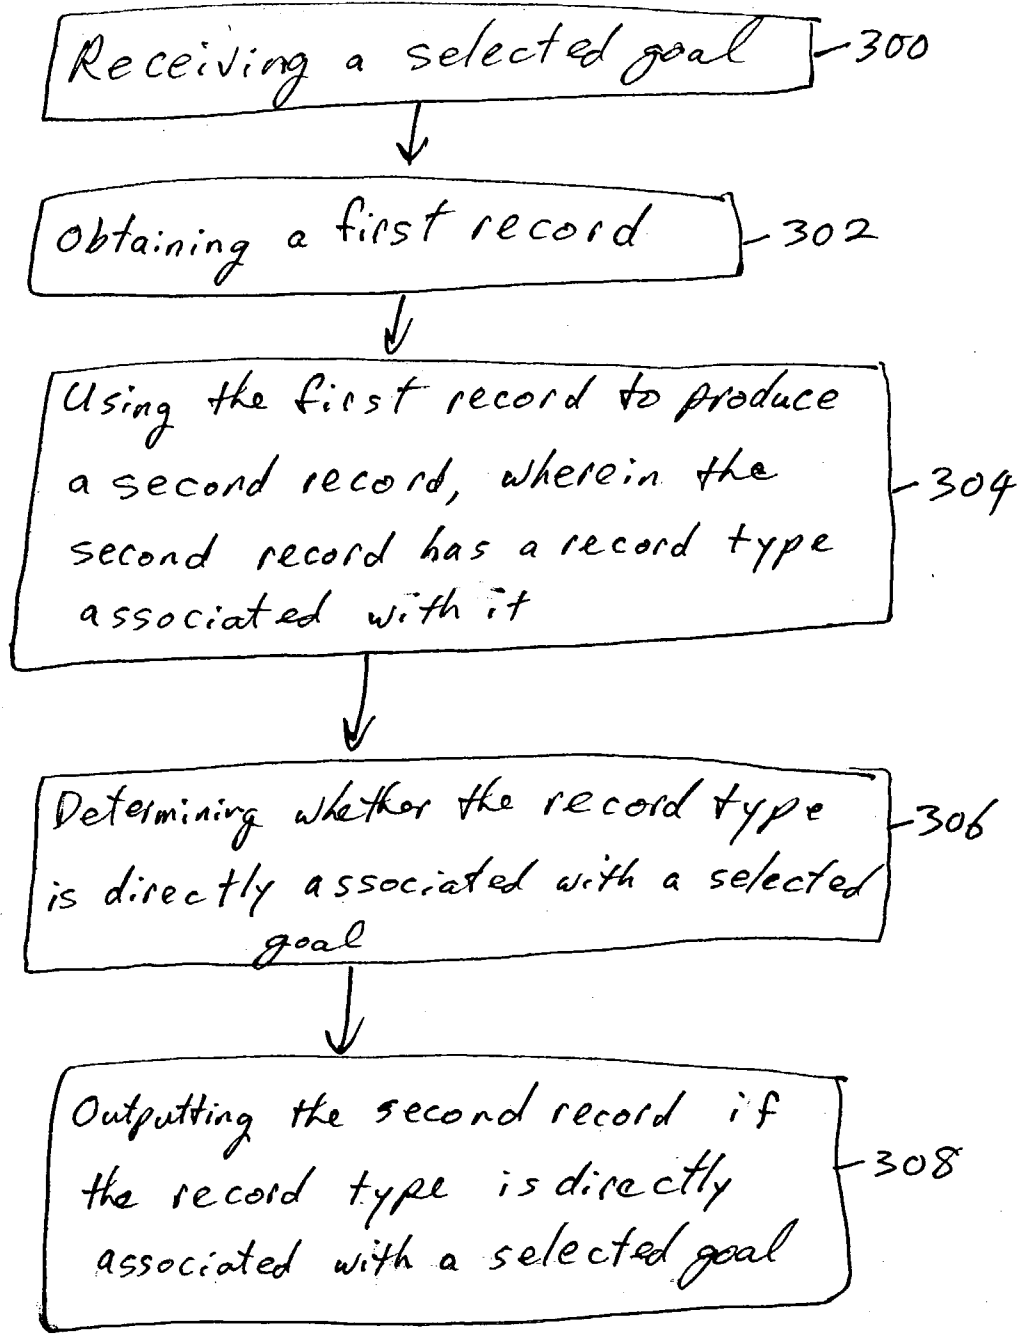 Receiving a selected goal 300
Obtaining a first record 302
Using the first record to produce
a second record, wherein the
second record has a record type
associated with it
304
Determining whether the record type
is directly associated with a selected
goal
306
Outputting the second record if
the record type is directly
associated with a selected goal
308